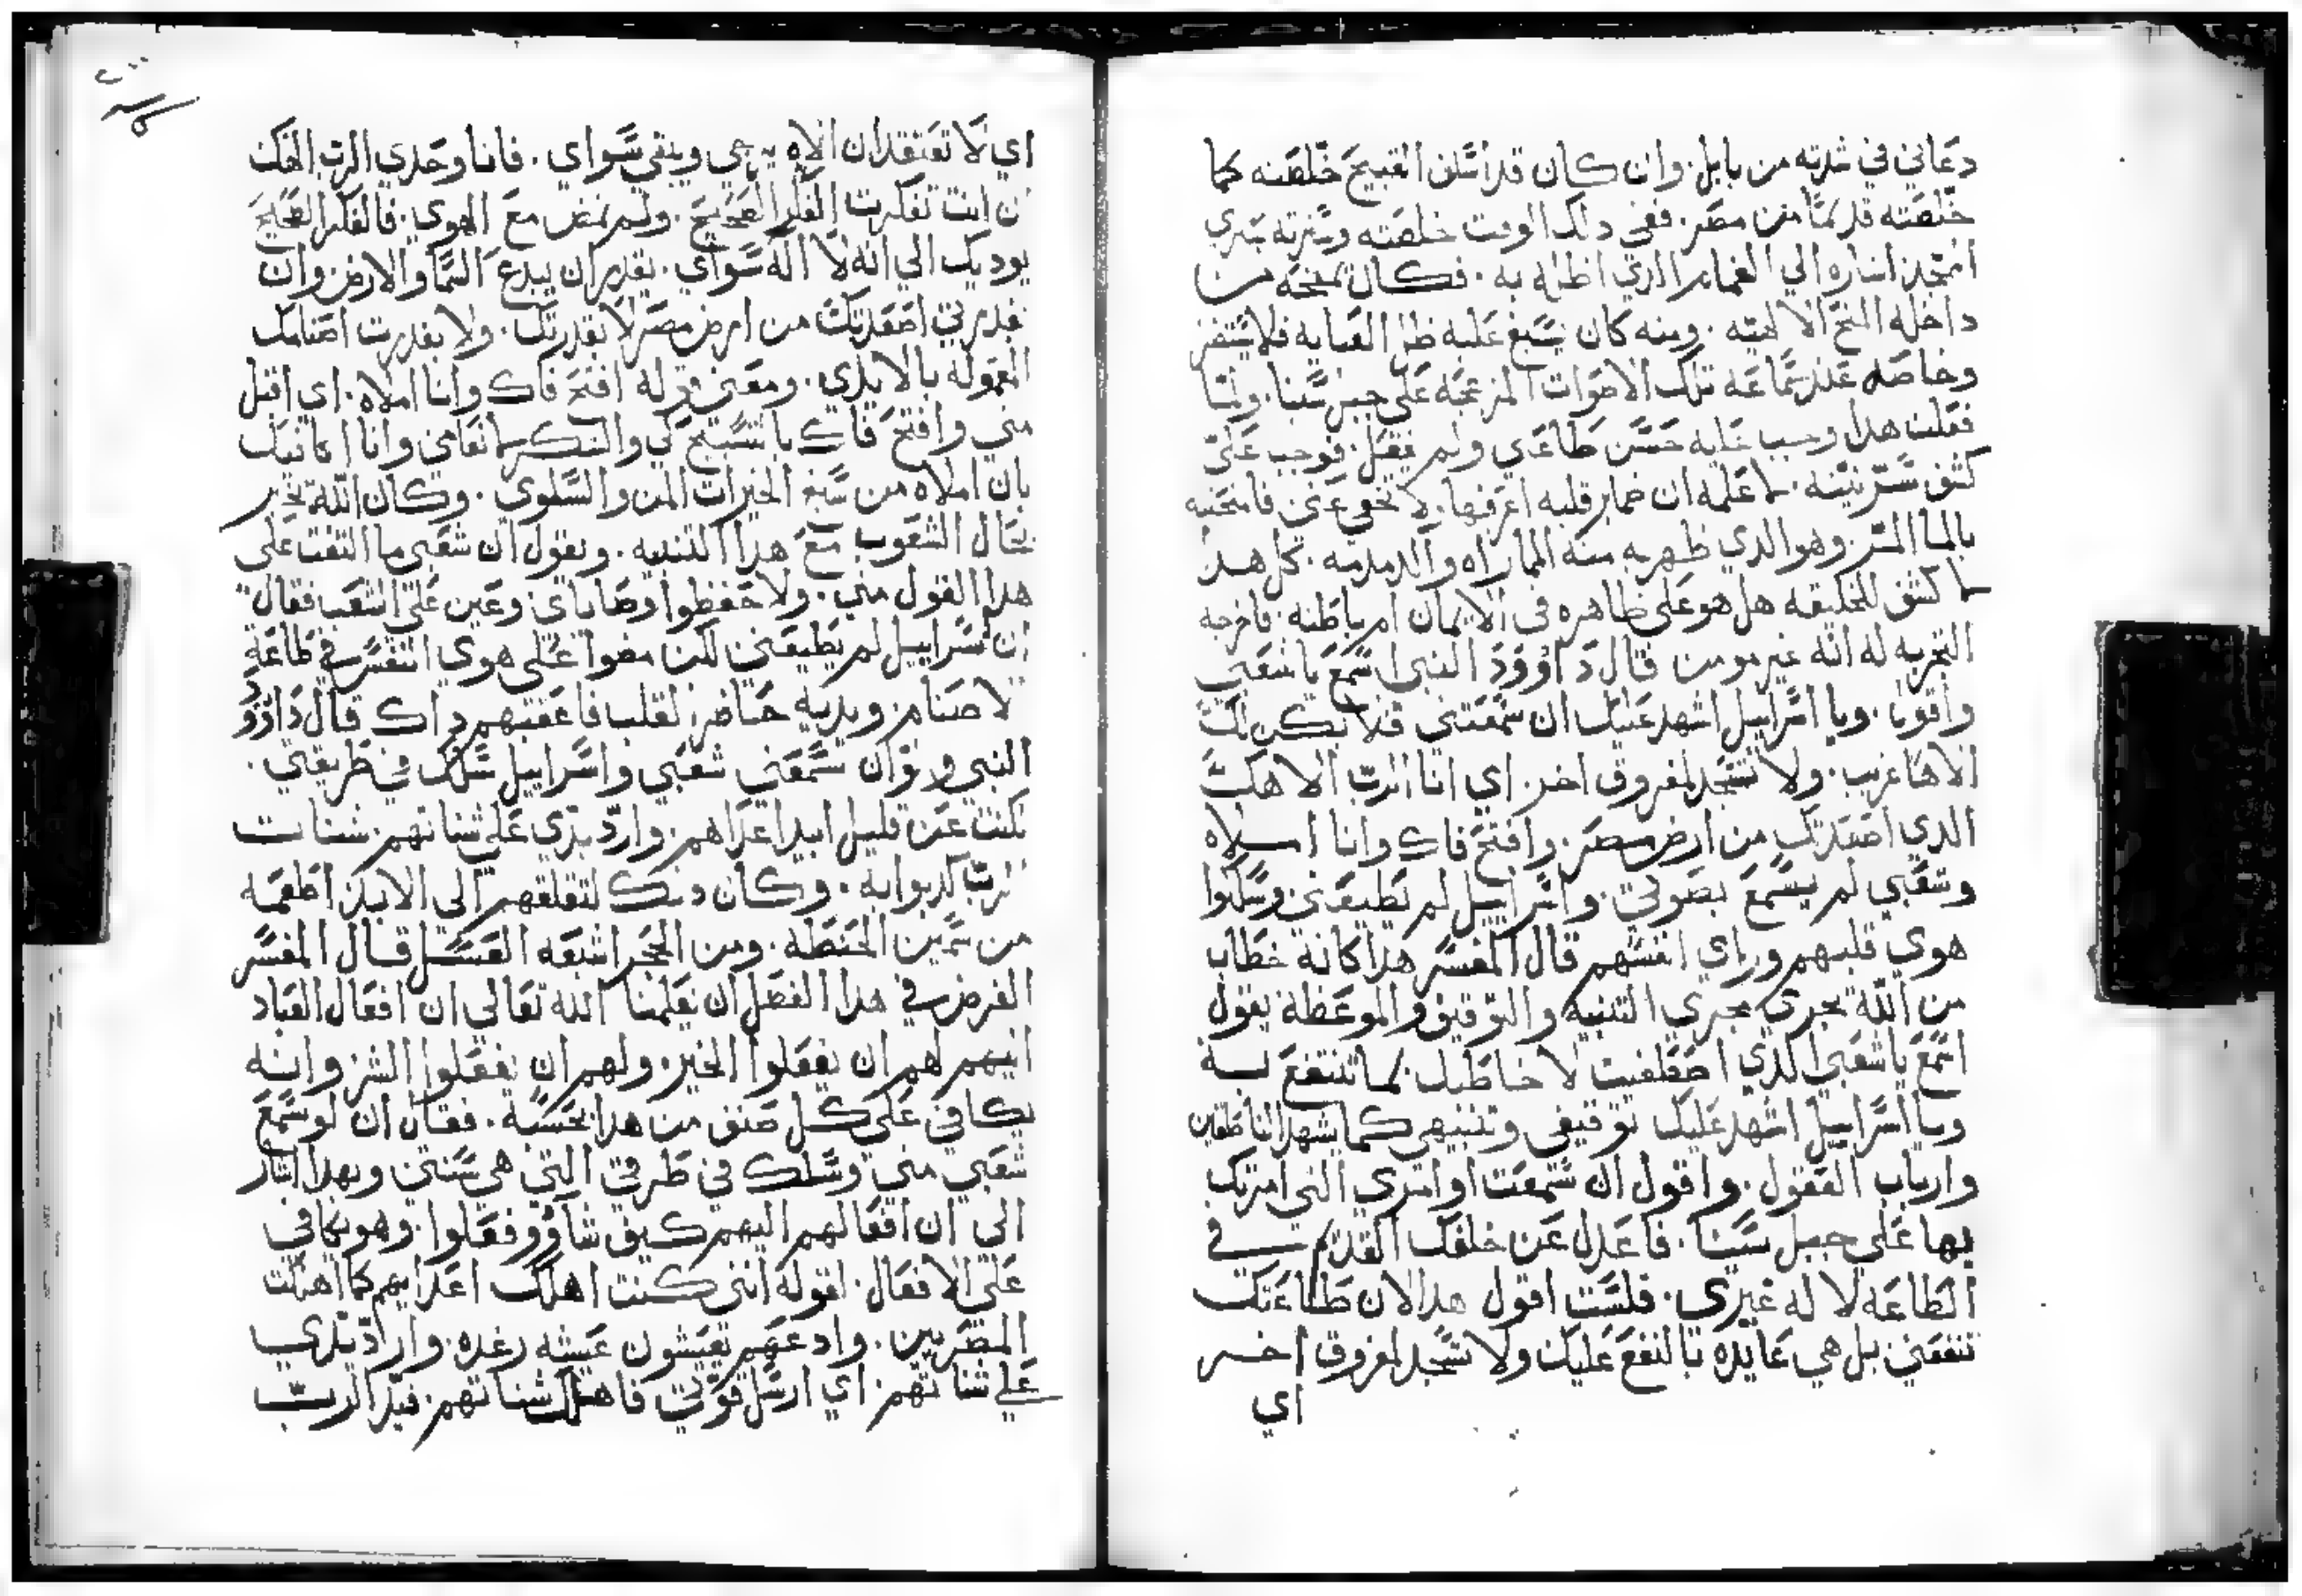 دعاني في شدته من بابل. وان كان قد اسلف القبيح خلصته كما
خلصته قديما من مصر. ففي دلك الوقت خلصته وسترته بستري
الممجد اشاره الي الغمام الدي اظله به. فكان يمنحه من
داخله المنح الالاهيه. ومنه كان يسبغ عليه ظل العنايه فلا
وخاصه عند سماعه تلك الاصوات المزعجه علي جبل سينا. ولما
فعلت هدا وجب عليه حسن طاعتي ولم يفعل. فوجب علي
كشف سر نيته. لما علمه ان ضماير قلبه اعرفها. لا تخفي عني فامتحنته
بالما المر. وهو الدي ظهر به منه الماراه والدمدمه. كل هدا
لما كشف للخليقه هل هو علي ظاهره في الايمان ام باطنه. فاخرجه
التجربه له انه غير مومن قال داوود النبي اسمع يا شعبي
واقول. ويا اسراييل اشهد عليك ان سمعتني فلا يكن لك
الاها غريب. ولا تسجد لمعروف اخر. اي انا الرب الاهك
الدي اصعدتك من ارض مصر. وافتح فاك وانا املاه
وشعبي لم يسمع بصوتي. واسراييل لم تطيعني وسلكوا
هوي قلبهم وراي انفسهم قال المفسر هدا كانه خطاب
من الله يجري مجري التنبيه والتوقيف والموعظة يقول
اسمع يا شعبي الدي اصطفيت لاخاطبك بما تنتفع به
ويا اسراييل اشهد عليك توقيفي وتنبيهي كما يشهد الناطقين
وارباب العقول. واقول ان سمعت اوامري التي امرتك
بها علي جبل سينا. فاعدل عن خلفك القديم في
الطاعه لاله غيري. فلست اقول هدا لان طاعتك
تنفعني بل هي عايده بالنفع عليك ولا تسجد لمعروف اخر
اي
اي لا تعتقد ان الاه يرجي ويتقي سواي. فانا وحدي الرب الاهك
ان انت تفكرت الفكر الصحيح. ولم تمض مع الهوي. فالفكر الصحيح
يوديك الي انه لا اله سواي. يقدر ان يبدع السما والارض وان
بقدرتي اصعدتك من ارض مصر لا بقدرتك. ولا بقدرت اصنامك
المعموله بالايدي. ومعني قوله افتح فاك وانا املاه. اي اقبل
مني وافتح فاك بالتسبيح لي والشكر لانعامي وانا اكافيك
بان املاه من سبغ الخيرات المن والسلوي. وكان الله يخبر
بحال الشعوب مع هدا التنبيه. ويقول ان شعبي ما التفت علي
هدا القول مني. ولا حفظوا وصاياي وعين علي الشعب فقال
ان اسراييل لم تطيعني لكن مضوا علي هوي انفسهم في طاعة
الاصنام قال داوود
النبي ولو ان سمعني شعبي واسراييل سلك في طريقي.
لكنت عن قليل ابيد اعداهم. وارد يدي علي شناتهم. شنات
الرب كدبوا به. وكان دلك لتقلقهم الي الابد. اطعمه
من سمين الحنطه. ومن الحجر اشبعه العسل قال المفسر
الغرض في هدا الفصل ان يعلمنا الله تعالي ان افعال العباد
اليهم لهم ان يفعلوا الخير. ولهم ان يفعلوا الشر وانه
يكافي علي كل صنف من هدا بحسبه. فقال ان لو سمع
شعبي مني وسلك في طرقي التي هي سنتي وبهدا اشار
الي ان افعالهم اليهم كيف شاوو فعلوا. وهو يكافي
علي الافعال. لقوله انني كنت اهلك اعداهم كما اهلكت
المصريين. وادعهم يعيشون عيشه رغده. وارد يدي
علي شناتهم. اي ارسل قوتي فاهلك شناتهم. فيد الرب